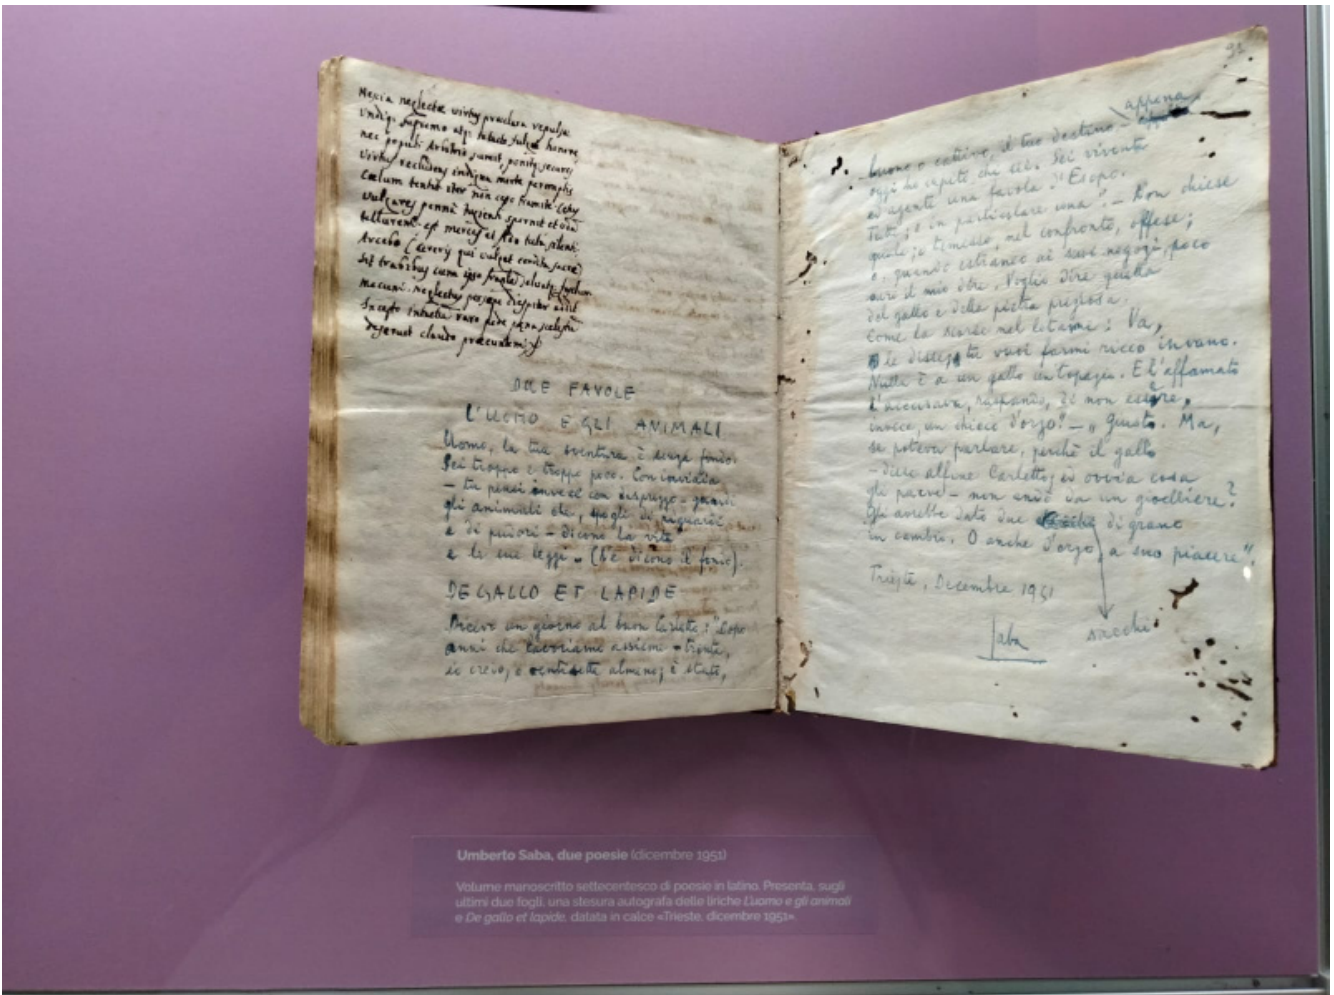 neglectæ virtus præclara repulsæ
nec populi Arbitrio
virtus recludens indigna morte peremptis
Cœlum tentat iter
spernit et
tellurem est merces et
Arcebo Cereris qui
sit trabibus
neglectus
raro pede pæna scelestu
deseruit claudo
DUE FAVOLE
L'UOMO E GLI ANIMALI
Uomo, la tua sventura è senza fondo.
Sei troppo e troppo poco. Con invidia
– tu pensi invece con disprezzo – guardi
gli animali che, spogli di riguardi
e di pudori – dicono la vita
e le sue leggi. (Ne dicono il fondo).
DE GALLO ET LAPIDE
Dicevo un giorno al buon Carletto: "Dopo
anni che lavoriamo assieme – trenta,
io credo, o ventisette almeno; è stato,
appena
buono o cattivo, il tuo destino –
oggi ho capito chi sei. Sei vivente
ed agente una favola d'Esopo.
Tutte; e in particolare una". – Non chiese
quale; io temesse, nel confronto, offese;
o, quando estraneo ai suoi negozi, poco
curi il mio dire. Voglio dire quella
del gallo e della pietra preziosa.
Come la scorse nel letame: Va,
le disse, tu vuoi farmi ricco invano.
Nulla è a un gallo un topazio. E l'affamato
l'accusava, raspando, di non essere,
invece, un chicco d'orzo? – „ Giusto. Ma,
se poteva parlare, perchè il gallo
– disse alfine Carletto; ed ovvia cosa
gli parve – non andò da un gioielliere?
Gli avrebbe dato due di grano
in cambio. O anche d'orzo, a suo piacere".
Trieste, Dicembre 1951
Saba
sacchi
Umberto Saba, due poesie (dicembre 1951)
Volume manoscritto settecentesco di poesie in latino. Presenta, sugli
ultimi due fogli, una stesura autografa delle liriche L'uomo e gli animali
e De gallo et lapide, datata in calce «Trieste, dicembre 1951».